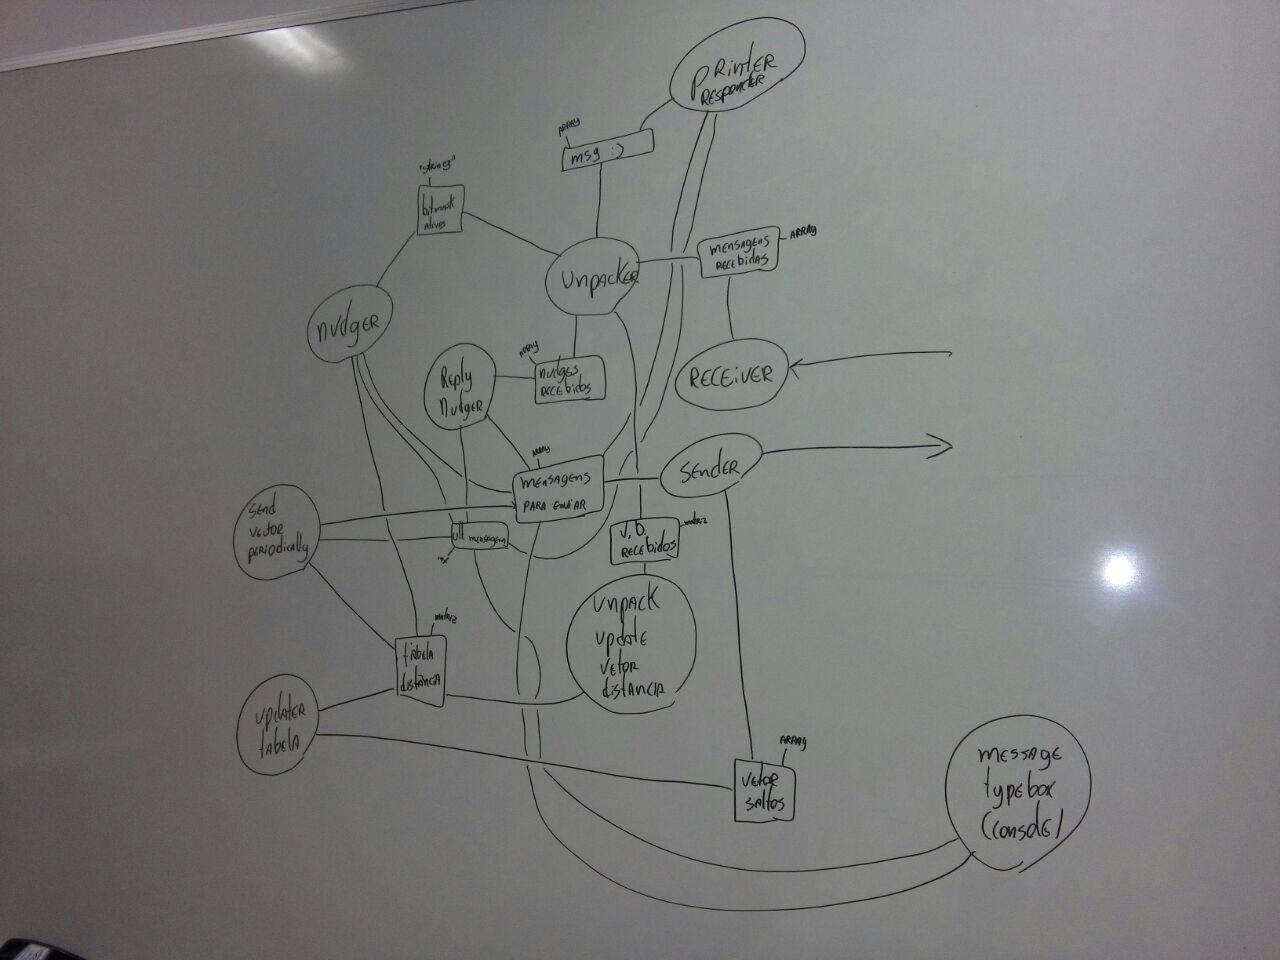 PRINTER
RESPONDER
ARRAY
msg :)
"string"
bitmask
alives
UNPACKER
MENSAGENS
RECEbidAS
ARRAY
NUdGER
ARRAY
NUdGES
RECEbidos
REPly
NUdGER
RECEIVER
ARRAY
MENSAGENS
PARA ENVIAR
SENDER
SENd
VETOR
PERiodically
ult mensagem
V.D.
RECEbidos
matriz
UNPACK
UPDATE
VETOR
distANCIA
matriz
tAbELA
distâNCIA
UPDATER
tAbELA
ARRAY
VETOR
SALtos
MESSAGE
typEbox
(CONSOLE)